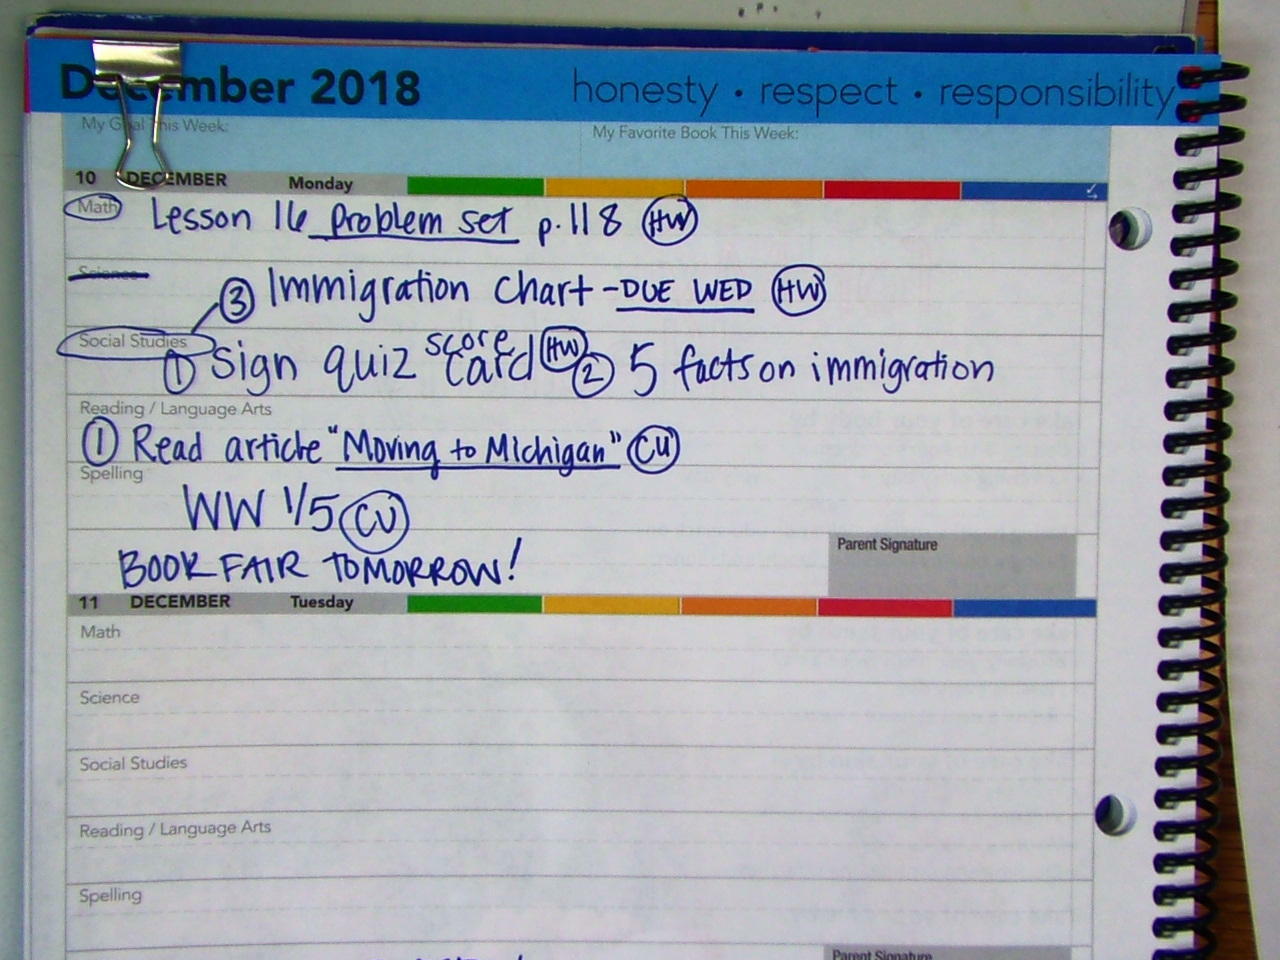 December 2018 honesty • respect • responsibility
My Goal This Week: My Favorite Book This Week:
10 DECEMBER Monday
Math Lesson 16 Problem set p.118 HW
Science
③ Immigration Chart - DUE WED HW
Social Studies
① Sign quiz score card HW ② 5 facts on immigration
Reading / Language Arts
① Read article "Moving to Michigan" CU
Spelling
WW 1/5 CU
BOOK FAIR TOMORROW!
Parent Signature
11 DECEMBER Tuesday
Math
Science
Social Studies
Reading / Language Arts
Spelling
Parent Signature